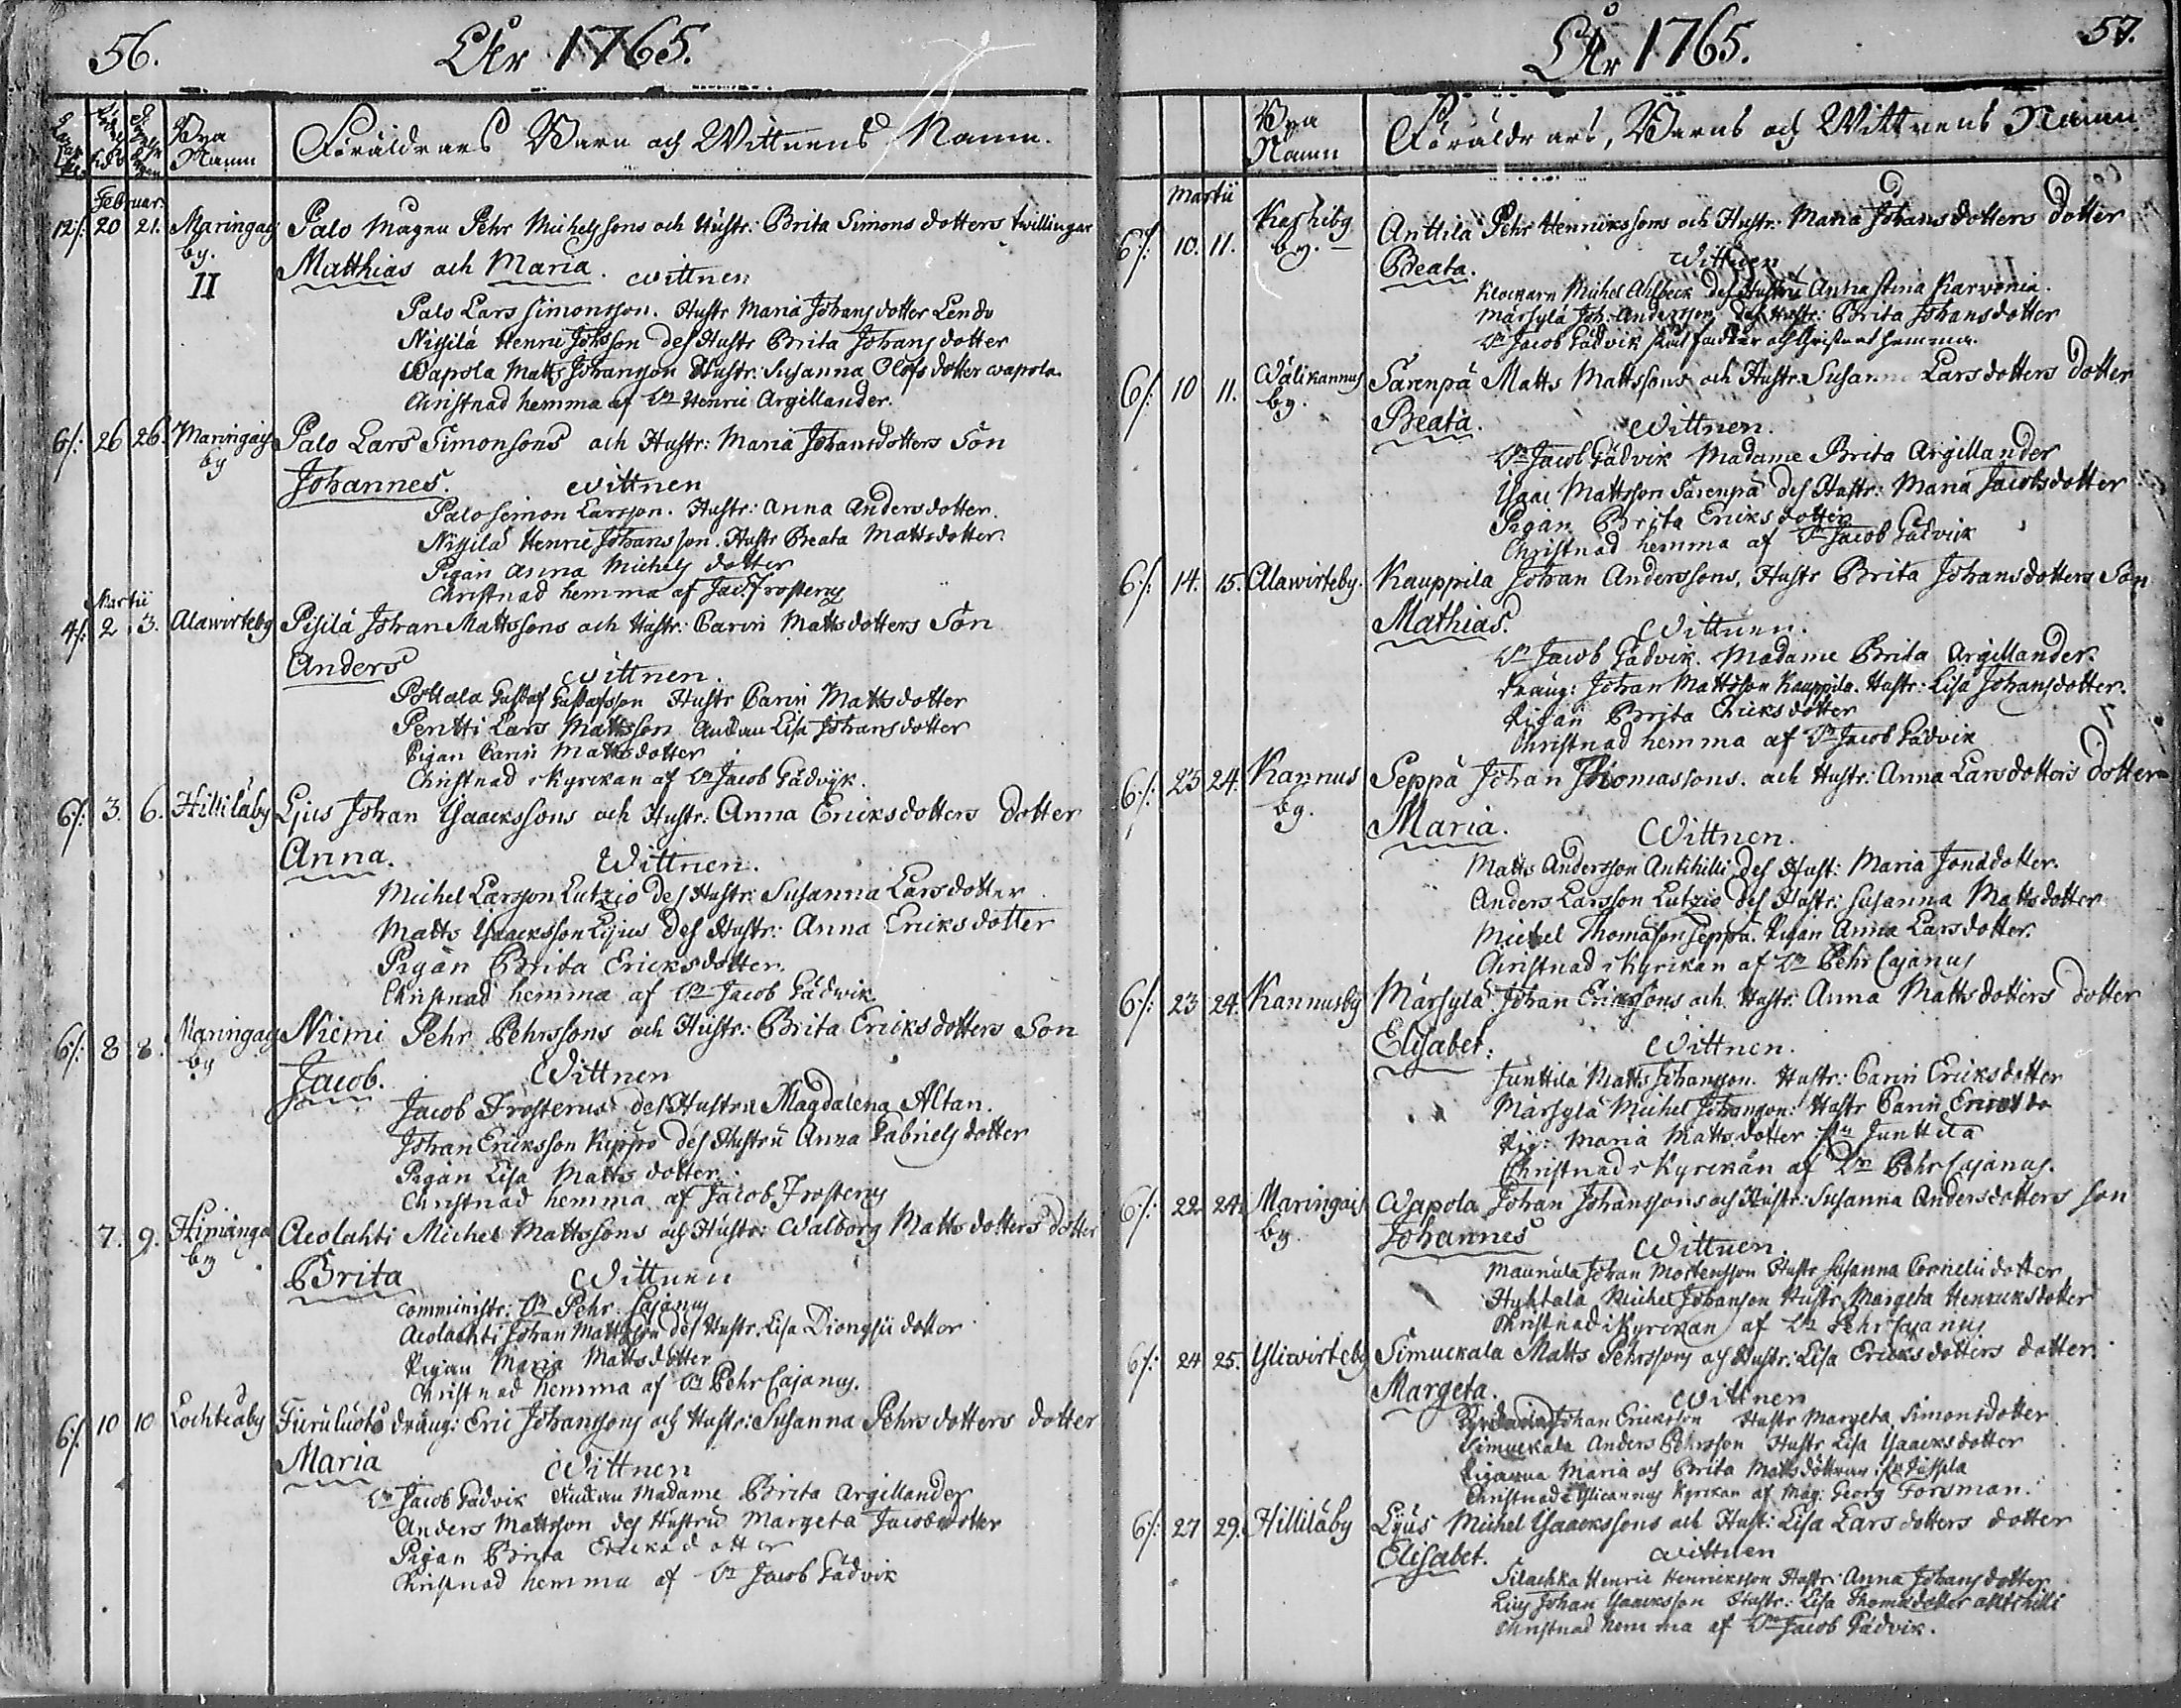 56.
År 1765.
Bya Namn
Föräldrars Barn och Wittnens Namn.
Februar:
12/: 20 21. Maringais by. Palo Magnu Pehr Michelssons och Hustr: Brita Simons dotters twillingar
II Matthias och Maria. wittnen
Palo Lars Simonsson. Hustr Maria Johansdotter Lendo
Nissilä Henric Johsson des Hustr Brita Johansdotter
Wapola Matts Johansson Hustr: Susanna Olofs dotter wapola.
Christnad hemma af Dn Henric Argillander.
6/: 26 26. Maringais by Palo Lars Simonsons och Hustr: Maria Johansdotters Son
Johannes. wittnen
Palo Simon Larsson. Hustr: Anna Andersdotter.
Nissilä Henric Johansson. Hustr Beata Mattsdotter.
Pigan Anna Michels dotter
Christnad hemma af Jac. Frosterus
Martii
4/: 2 3. Alawirteby Pisilä Johan Mattssons och Hustr: Carin Matts dotters Son
Anders wittnen.
Pottala Gustaf Gustafsson Hustr Carin Matts dotter
Pentti Lars Mattsson Lisa Johansdotter
Pigan Carin Matts dotter
Christnad i Kyrckan af Dn Jacob Gådvik.
6/: 3 6. Hilliläby Ljus Johan Ysaackssons och Hustr: Anna Ericksdotters dotter
Anna. Wittnen.
Michel Larsson Lutzio des Hustr: Susanna Larsdotter
Matts Ysaacksson Lijus des Hustr: Anna Ericksdotter
Pigan Brita Ericksdotter.
Christnad hemma af Dn Jacob Gådvik.
6/: 8 8. Maringais by Niemi Pehr Pehrssons och Hustr: Brita Ericksdotters Son
Jacob. Wittnen
Jacob Frosterus des Hustru Magdalena Altan.
Johan Ericksson Kippo des Hustru Anna Gabriels dotter
Pigan Lisa Matts dotter.
Christnad hemma af Jacob Frosterus
7. 9. Himanga by Aeolahti Michel Mattssons och Hustr: Walborg Matts dotters dotter
Brita Wittnen
comministr: Dn Pehr Cajanus
Aeolachti Johan Mattsson des Hustr: Lisa Dionysii dotter
Pigan Maria Mattsdotter
Christnad hemma af Dn Pehr Cajanus.
6/: 10 10 Lochteåby dräng: Eric Johanssons och Hustr: Susanna Pehrsdotters dotter
Maria Wittnen
Dn Jacob Gådvik Madame Brita Argillander
Anders Mattsson des Hustru Margeta Jacobsdotter
Pigan Brita Ericksdotter
Christnad hemma af Dn Jacob Gådvik
57.
År 1765.
Bya Namn
Föräldrars, Barns och Wittnens Namn
Martii
6/: 10. 11. by. Anttila Pehr Henrickssons och Hustr: Maria Johansdotters dotter
Beata. Wittnen
Klockarn Michel Ahlbeck des Hustru Anna Stina Karvonia.
Märsylä Joh: Andersson des Hustr: Brita Johansdotter
Dn Jacob Gådvik och Christnat hemma.
6/: 10 11. Wälikannus by. Särenpä Matts Mattssons och Hustr Susanna Larsdotters dotter
Beata. Wittnen.
Dn Jacob Gådvik Madame Brita Argillander
Ysaac Mattsson Särenpä des Hustr: Maria Jacobsdotter
Pigan Brita Ericks dotter
Christnad hemma af Dn Jacob Gådvik
6/: 14. 15. Alawirteby. Kauppila Johan Anderssons, Hustr Brita Johansdotters Son
Mathias. Wittnen.
Dn Jacob Gådvik. Madame Brita Argillander.
dräng: Johan Mattsson Kauppila. Hustr: Lisa Johansdotter.
Pigan Brita Ericksdotter
Christnad hemma af Dn Jacob Gådvik
6/: 23 24. Kannus by. Seppä Johan Thomassons. och Hustr: Anna Larsdotters dotter
Maria. Wittnen.
Matts Andersson Antihilli des Hust: Maria Jonsdotter.
Anders Larsson Lutzio des Hustr: Susanna Mattsdotter.
Michel Thomason Seppä. Pigan Anna Larsdotter.
Christnad i Kyrckan af Dn Pehr Cajanus
6/: 23 24. Kannusby Märsylä Johan Erickssons och Hustr: Anna Mattsdotters dotter
Elisabet. Wittnen.
Junttila Matts Johansson. Hustr: Carin Ericksdotter
Märsylä Michel Johansson: Hustr Carin Ericks do
Pig: Maria Matts dotter från Junttila
Christnad i Kyrckan af Dn Pehr Cajanus.
6/: 22 24. Maringais by. Wapola Johan Johanssons och Hustr: Susanna Andersdotters son
Johannes Wittnen.
Maunula Johan Mortensson Hustr Susanna Cornelii dotter
Hyhtala Michel Johanson Hustr Margeta Henricksdotter
Christnad i Kyrckan af Dn Pehr Cajanus
6/: 24 25. Yliwirteby Simuckala Matts Pehrssons och Hustr: Lisa Ericksdotters dotter.
Margeta. Wittnen
Johan Ericksson Hustr Margeta Simonsdotter
Simuckala Anders Pehrsson Hustr Lisa Ysaacks dotter
Pigorna Maria och Brita Mattsdöttrar
Christnad i Ylicannus Kyrckan af Mag: Georg Forsman.
6/: 27 29. Hilliläby Lijus Michel Ysaackssons och Hust: Lisa Larsdotters dotter
Elisabet. wittnen
Silachka Henric Henricksson Hustr: Anna Johansdotter
Lius Johan Ysaacksson Hustr: Lisa Thomasdotter Antihilli
Christnad hemma af Dn Jacob Gådvik.